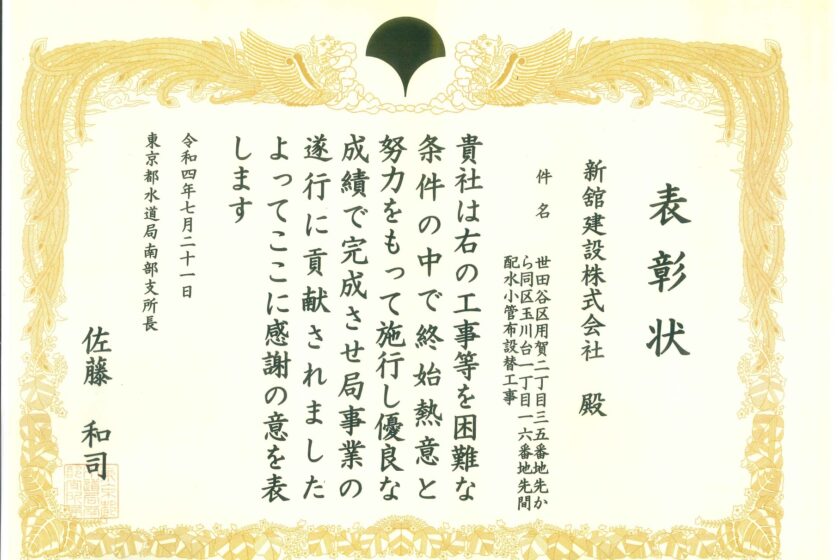 表彰状
新舘建設株式会社 殿
件名
世田谷区用賀二丁目三五番地先か
ら同区玉川台一丁目一六番地先間
配水小管布設替工事
貴社は右の工事等を困難な
条件の中で終始熱意と
努力をもって施行し優良な
成績で完成させ局事業の
遂行に貢献されました
よってここに感謝の意を表
します
令和四年七月二十一日
東京都水道局南部支所長
佐藤 和司